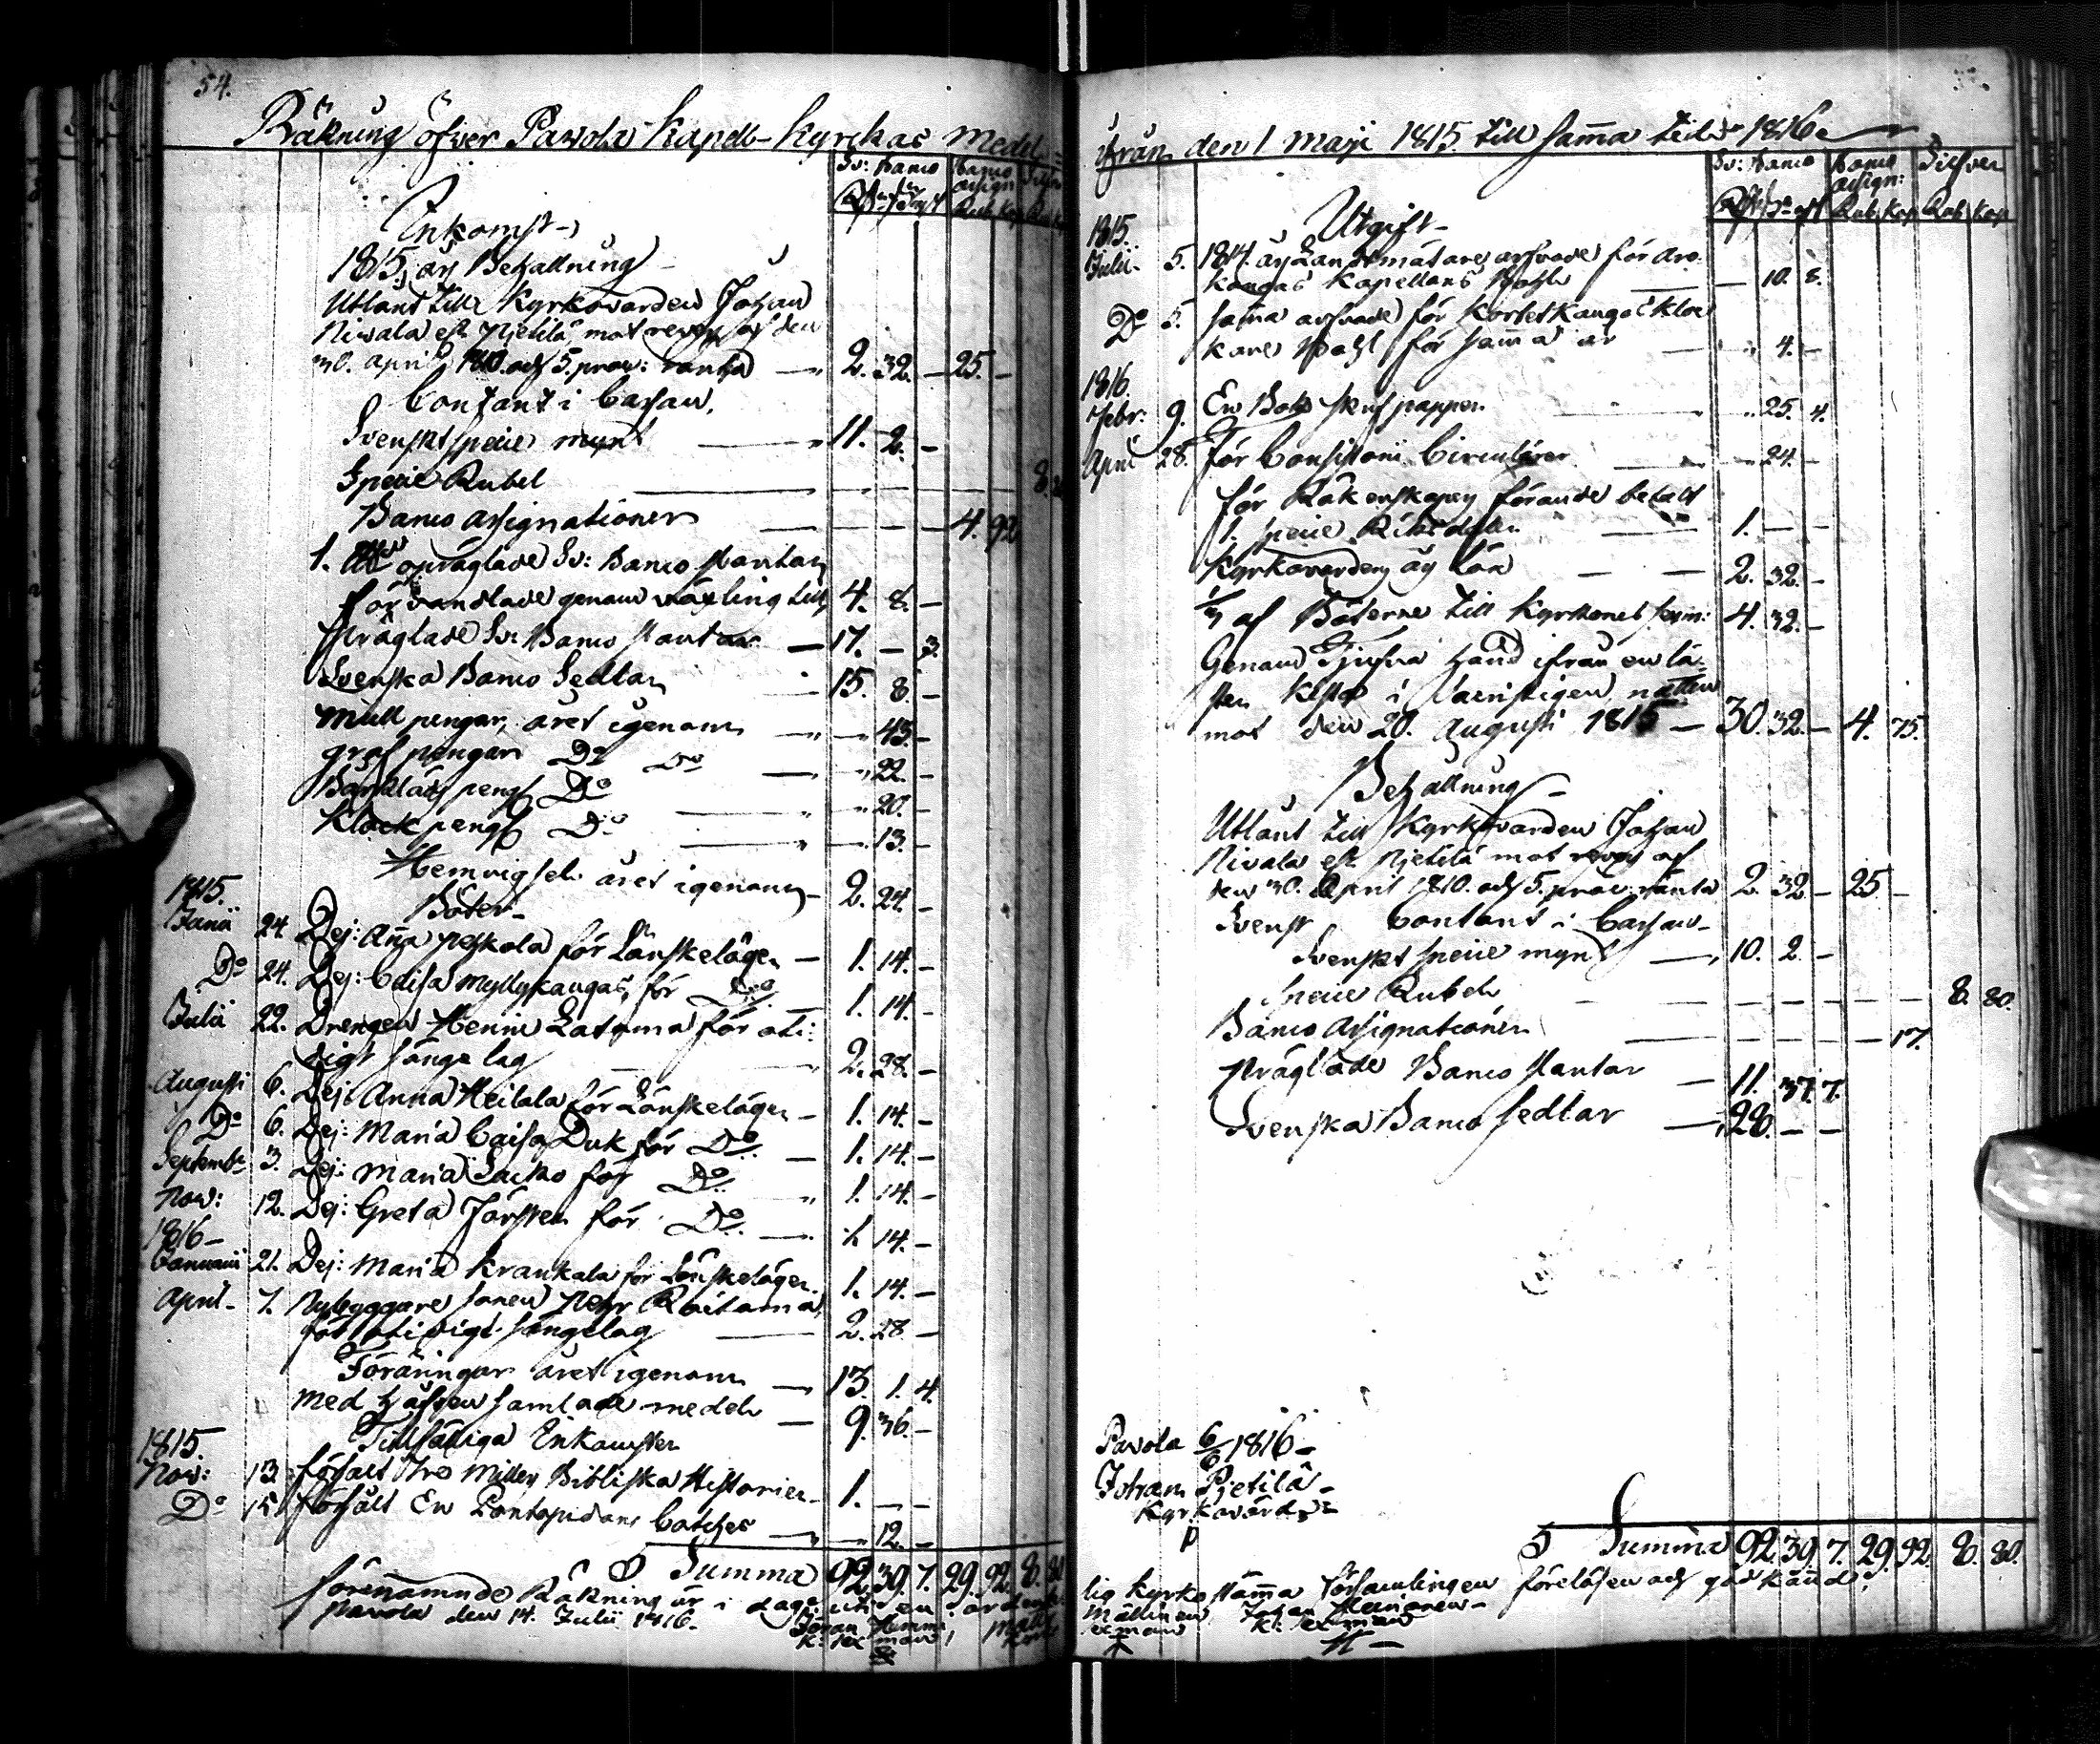 54.
Räkning öfwer Pavola Kapell-Kyrckas Medel
Sv: Banco Banco assign: Silfver
Rub Kop Rub
Inkomst
1815 års Behållning
Utlånt till Kyrkovärden Johan
Nivala eft. Pjetilä, mot revers af den
30. April 1810. och 5. proc: ränta — 2. 32. — 25. —
Contant i Cassan,
Svenskt specie mynt — 11. 2. —
Specie Rubel — 8.
Banco assignationer — 4. 92
1. opräglade Sv: Banco Plantar
förvandlade genom växling till 4. 8. —
Präglade Sv: Banco Plantar — 17. — 3.
Svenska Banco Sedlar — 15. 8. —
Mull pengar, året igenom — 45. —
graf pengar Do Do — 22. —
Bårklädes peng: Do — 20. —
Klock peng: Do — 13. —
Hemvigsel. året igenom — 2. 24. —
1815. Böter
Junii 24. Dej: Anna Peskola för Lönskeläger — 1. 14. —
Do 24. Dej: Caisa Myllykangas, för Do — 1. 14. —
Julii 22. Drengen Henric Latoma för oti:
digt sänge lag — 2. 28. —
Augusti 6. Dej: Anna Heilala för Lönskeläger — 1. 14. —
Do 6. Dej: Maria Caisa Duk för Do — 1. 14. —
Septembr 3. Dej: Maria Lacko för Do — 1. 14. —
Nov: 12. Dej: Greta Jörsten för Do — 1. 14. —
1816 —
Januarii 21. Dej: Maria Krankala för Lönskeläger 1. 14. —
April 7. Nybyggare sonen Pehr Raitama,
för otidigt sängelag — 2. 28. —
Föräringar året igenom — 13. 1. 4.
Med håfven samlade medel — 9. 36. —
1815. Tillfälliga Inkomster
Nov: 13. försålt Tre Millers Bibliska Historier — 1. — —
Do 15. försålt En Pontopidans Catches — 12. —
Summa 92. 39. 7. 29. 92. 8. 80
förenämnde Räkning är i dag uti en ordent
Pavola den 14. Julii 1816.
Johan Hemmi
K: sexman
ifrån den 1 Maji 1815. till samma tid 1816.
Sv: Banco Banco assign: Silfver
Rub Kop Rub Kop
1815. Utgift
Julii 5. 1814. års Landtmätare arfvode för Aro
kangas Kapellans Bohl — 10. 8.
Do 5. samma arfvode för Kortetkangas Kloc
kare Bohl för samma år — 4. —
1816
Febr: 9. En Bok skrif papper — 25. 4.
April 28. För Consistorii Circulairer — 24. —
för Räkenskapers förande betalt
1. specie Riksdaler — 1. — —
Kyrkovärdens års lön — 2. 32. —
1/3 af Böterne till Kyrkones 4. 32. —
Genom Tjufva hand ifrån en lå:
sten Kista i Sacristigen natten
mot den 20. Augusti 1815 — 30. 32. — 4. 75.
Behållning
Utlånt till Kyrkovärden Johan
Nivala eft. Pjetilä mot revers af
den 30. April 1810. och 5. proc. ränta 2. 32. — 25. —
Svenst Contant i Cassan
Svenskt specie mynt — 10. 2. —
Specie Rubel — 8. 80.
Banco Assignationer — 17.
Präglade Banco Plantar — 11. 37. 7.
Svenska Banco sedlar — 28. — —
Pavola 6/6 1816 —
Johan Pjetilä
Kyrkovärd
Summa 92. 39. 7. 29. 92. 8. 80.
lig Kyrko stämma församlingen föreläsen och god känd.
Mällinen
sexman
Johan
K: sexman